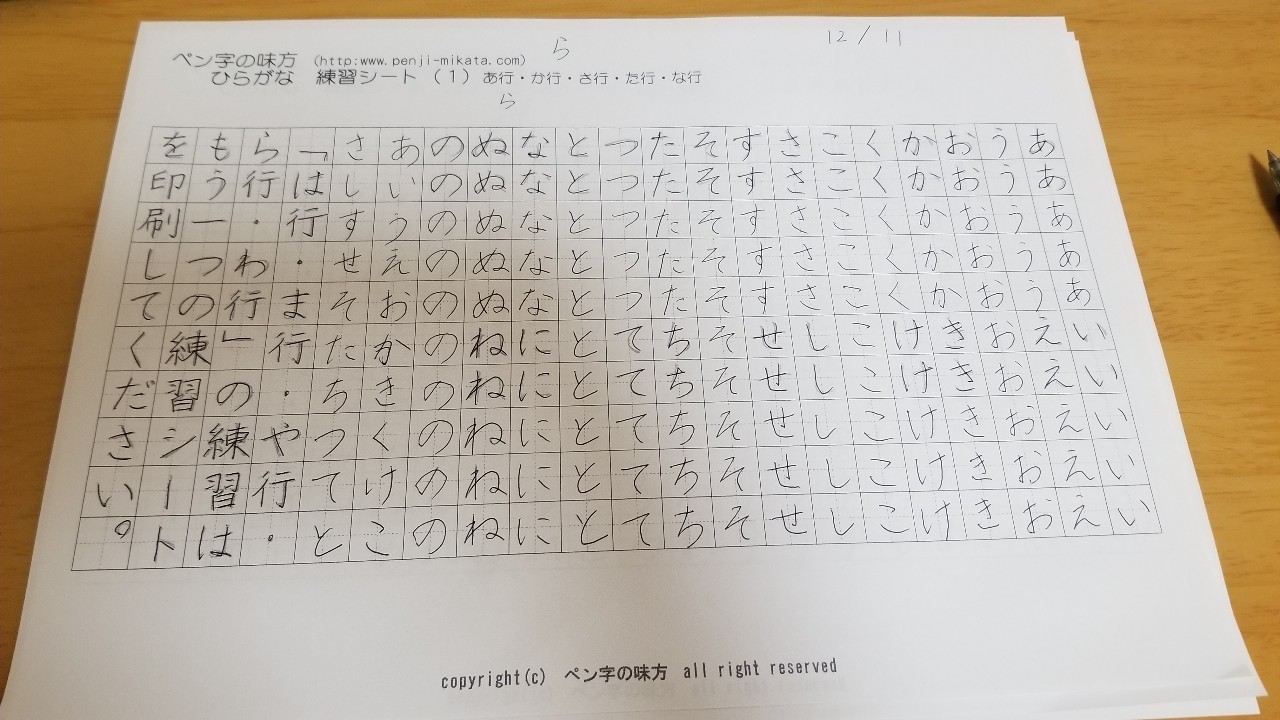 12/11
ら
ペン字の味方 (http:www.penji-mikata.com)
ひらがな 練習シート (1) あ行・か行・さ行・た行・な行
ら
あああああいいいいい
うううううえええええ
おおおおおおおおおお
かかかかかききききき
くくくくくけけけけけ
ここここここここここ
さささささししししし
すすすすすせせせせせ
そそそそそそそそそそ
たたたたたちちちちち
つつつつつててててて
とととととととととと
なななななににににに
ぬぬぬぬぬねねねねね
のののののののののの
あいうえおかきくけこ
さしすせそたちつてと
「は行・ま行・や行・
ら行・わ行」の練習は
もう一つの練習シート
を印刷してください。
copyright(c) ペン字の味方 all right reserved